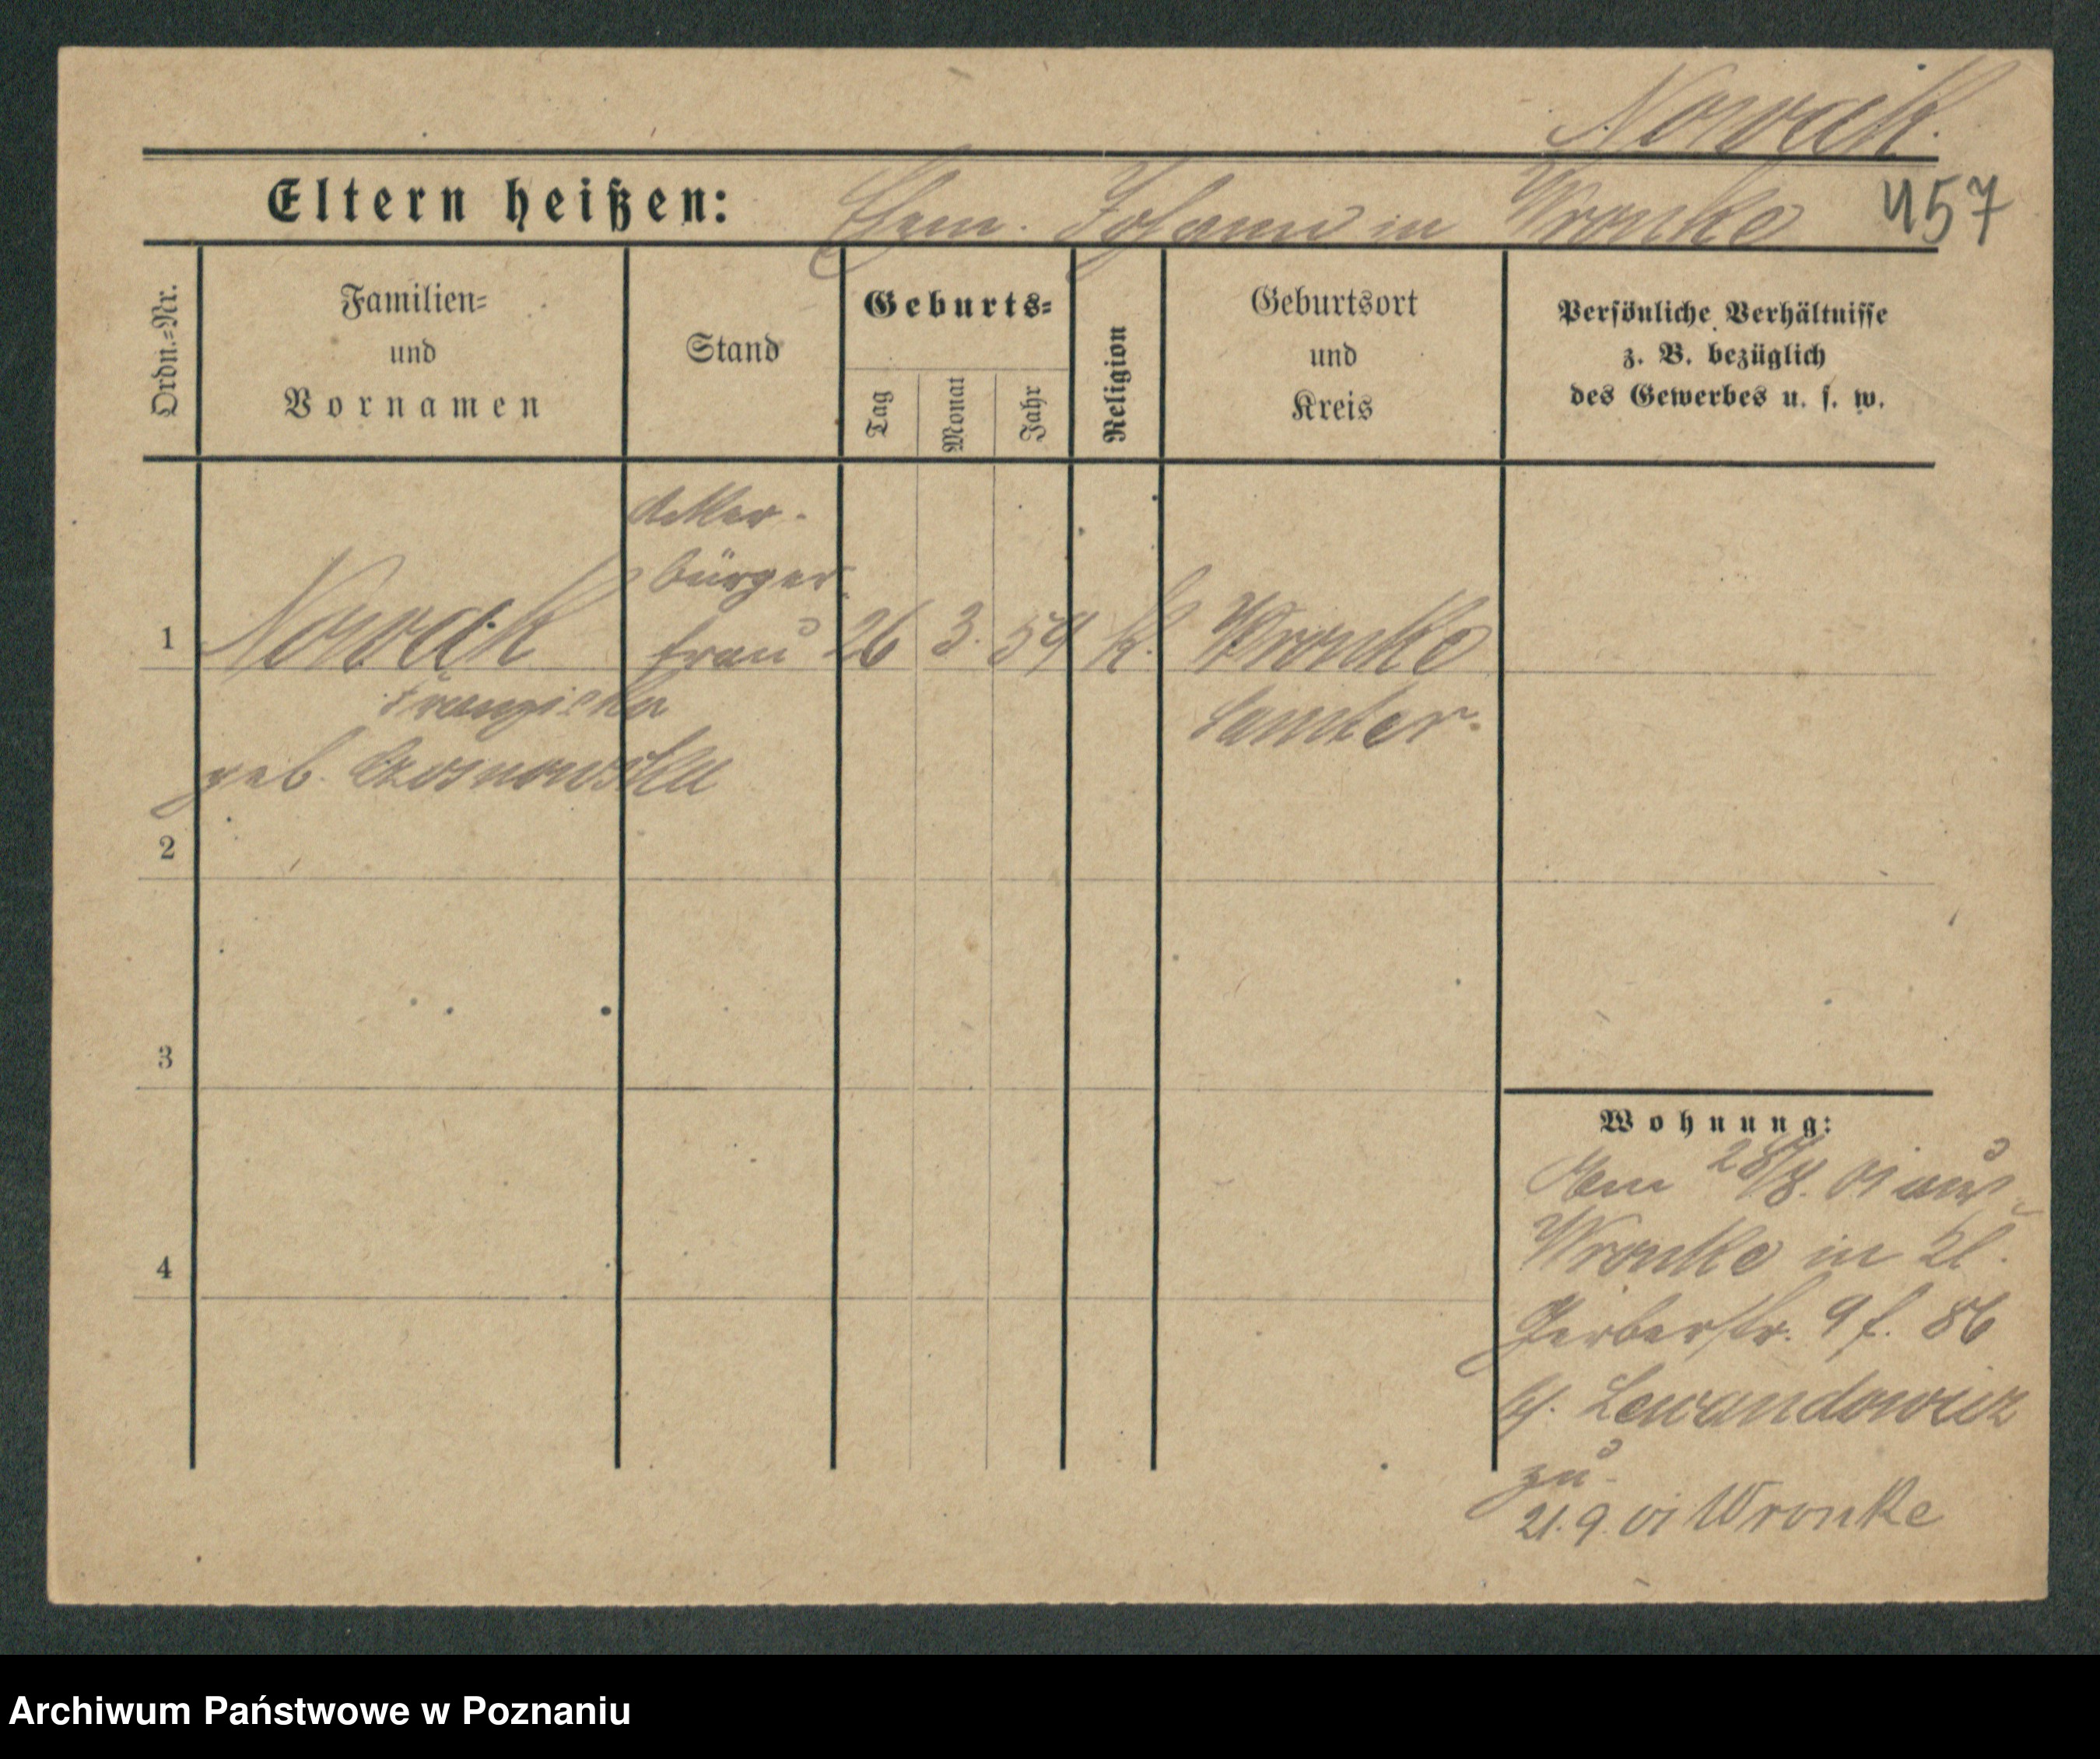 Nowak.
Eltern heißen: Ehem. Johann in Wronke 457
Ordn.-Nr.
Familien-
und
Vornamen
Stand
Geburts-
Tag
Monat
Jahr
Religion
Geburtsort
und
Kreis
Persönliche Verhältnisse
z. B. bezüglich
des Gewerbes u. s. w.
Acker-
bürger
1 Nowak frau 26 3. 59 k. Wronke
Franziska Samter.
geb.
2
3
4
Wohnung:
Am 28/8. 01 aus
Wronke in kl.
Gerberstr. 9 f. 86
bf. Lewandowicz
zu
21. 9. 01 Wronke
Archiwum Państwowe w Poznaniu